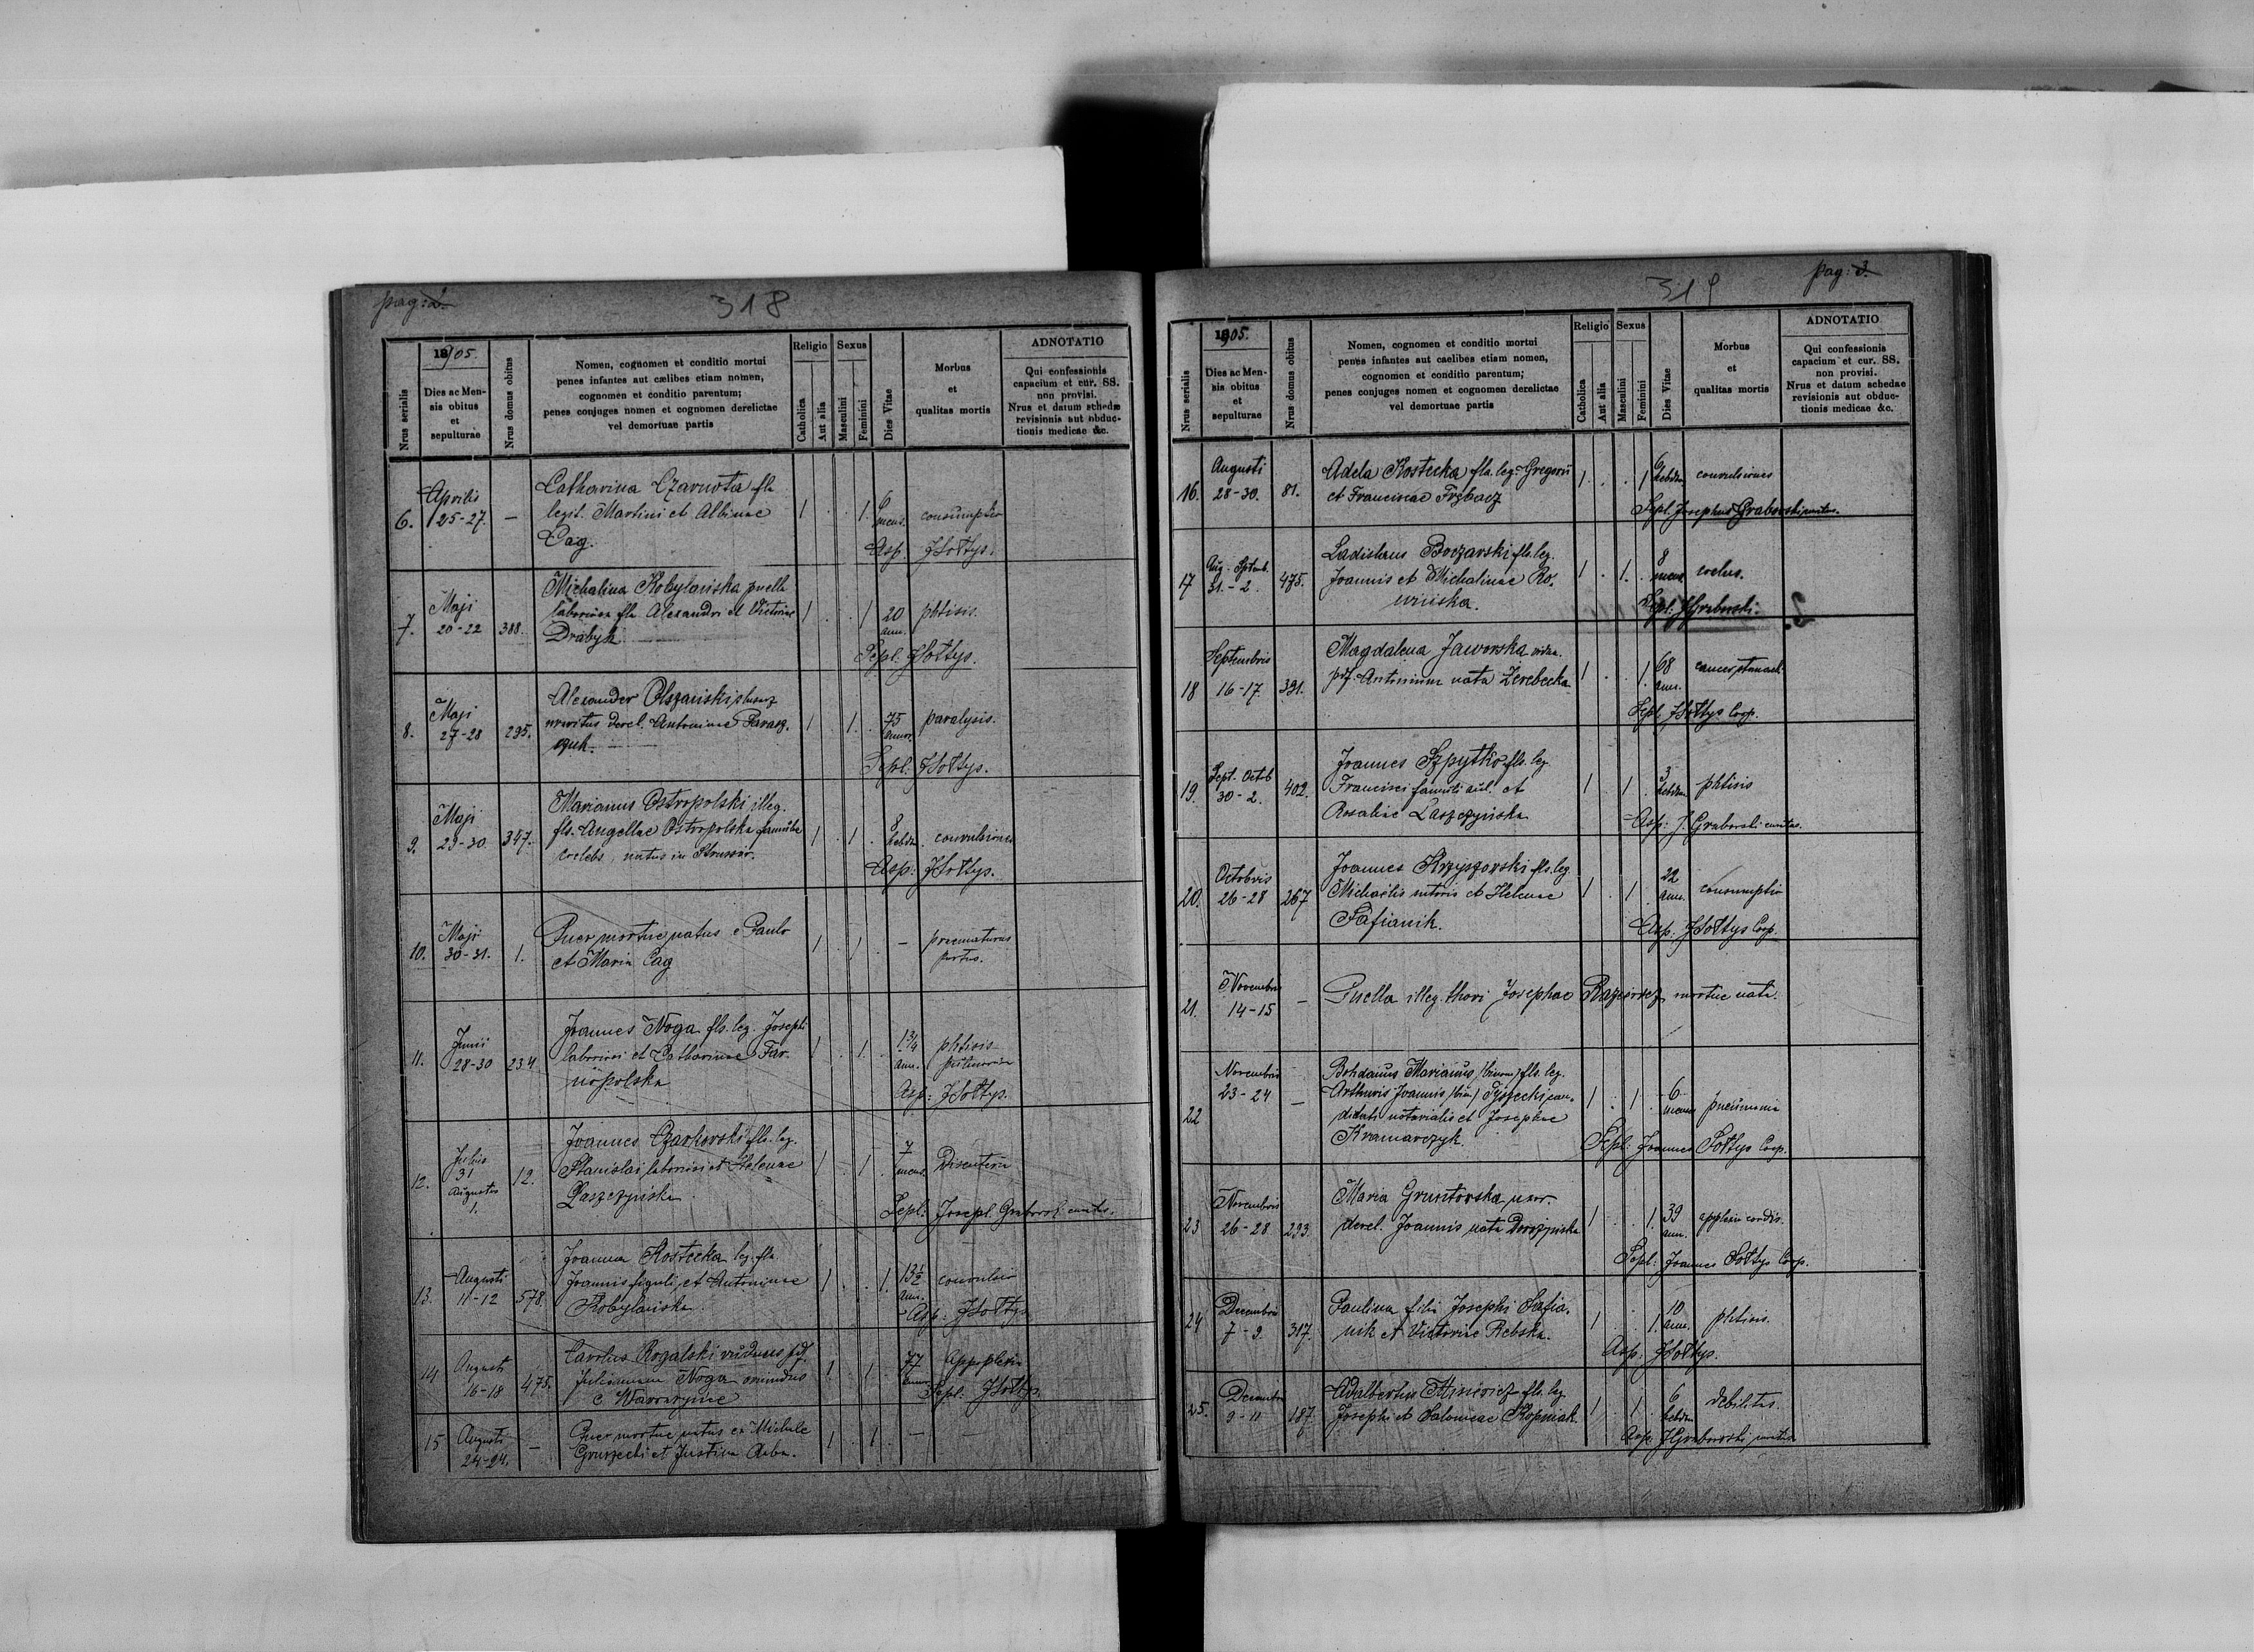 pag: 2.
318
1905.
Nrus serialis
Dies ac Men-
sis obitus
et
sepulturae
Nrus domus obitus
Nomen, cognomen et conditio mortui
penes infantes aut cælibes etiam nomen,
cognomen et conditio parentum;
penes conjuges nomen et cognomen derelictae
vel demortuae partis
Religio
Catholica
Aut alia
Sexus
Masculini
Feminini
Dies Vitae
Morbus
et
qualitas mortis
ADNOTATIO
Qui confessionis
capacium et cur. SS.
non provisi.
Nrus et datum schedae
revisionis aut obduc-
tionis medicae &c.
6. Aprilis 25-27. — Catharina Czarnota fla
legit. Martini et Albinae
Cag. 1 . . 1. 6 mens. consumptio
Asp. JSołtys.
7. Maji 20-22 388. Michalina Kobylańska puella
laboriosa fla Alexandri et Victoriae
Drabyk 1 . . 1 20 ann. phtisis.
Sepl. JSołtys.
8. Maji 27-28 295. Alexander Olszański
derel. Antoninae Parasz.
czuk. 1 . 1. . 75 annor. paralysis.
Sepl: JSołtys.
9. Maji 29-30 347. Marianus Ostropolski illeg.
fls. Angellae Ostropolska famula
coelebs, natus in Strussów. 1 . 1 . 8 hebdm. convulsiones
Asp: JSołtys.
10. Maji 30-31. 1. Puer mortue natus e Paulo
et Maria Cag 1 . 1 . — praematurus
partus.
11. Junii 28-30 234 Joannes Noga fls. leg. Josephi
laboriosi et Catharinae Tar-
nopolska 1 . 1. . 1 3/4 ann. phtisis
Asp: JSołtys.
12. Julii 31 Augustus 1. 12. Joannes Czarkowski fls. leg.
Stanislai laboriosi et Helenae
Laszczyńska. 1 . 1 . 7 mens. Disenteria
Sepl: Joseph. Grabowski curatus.
13. Augusti 11-12 578. Joanna Kostecka leg. fla
Joannis figuli et Antoninae
Kobylańska. 1 . . 1. 13 1/2 ann. convulsio
Asp: JSołtys
14 Augusti 16-18 475. Carolus Rogalski viduus pdf.
Julianam Noga oriundus
e Wawrzyńce 1 . 1 . 77 annor. Appoplexia
Sepl. JSołtys.
15 Augusti 24-24. — Puer mortue natus ex Michale
Gruszecki et Justina Baba. 1 . 1 . — —
319
pag: 3.
1905.
Nrus serialis
Dies ac Men-
sis obitus
et
sepulturae
Nrus domus obitus
Nomen, cognomen et conditio mortui
penes infantes aut caelibes etiam nomen,
cognomen et conditio parentum;
penes conjuges nomen et cognomen derelictae
vel demortuae partis
Religio
Catholica
Aut alia
Sexus
Masculini
Feminini
Dies Vitae
Morbus
et
qualitas mortis
ADNOTATIO
Qui confessionis
capacium et cur. SS.
non provisi.
Nrus et datum schedae
revisionis aut obduc-
tionis medicae &c.
16. Augusti 28-30. 81. Adela Kostecka fla. leg. Gregorii
et Franciscae Trębacz 1 . . 1 6 hebdm. convulsiones
Sepl. Josephus Grabowski curatus.
17 Aug.-Septemb. 31.-2. 475. Ladislaus Boczarski fls. leg.
Joannis et Michalinae Ro-
1 . 1. . 8 mens.
Sepl. JGrabowski.
18 Septembris 16-17. 391. Magdalena Jaworska vidua
pdf. Antonium nata Zerebecka 1 . . 1. 68 ann. cancer stomach.
Sepl. JSołtys Coop.
19. Sept.-Octb 30-2. 402. Joannes Szpytko fls. leg.
Francisci famuli aul. et
Rosaliae Laszczyńska 1 . 1 . 3 hebdm. phtisis
Asp: J. Grabowski curatus.
20. Octobris 26-28 267 Joannes Krzyszowski fls. leg.
Michaelis sutoris et Helenae
Tafianik. 1 . 1 . 22 ann. consumptio
Asp: JSołtys Coop.
21. Novembris 14-15 — Puella illeg. thori Josephae mortue nata.
22 Novembris 23-24 — Bohdanus Marianus (binom) fls. leg.
Arthuris Joannis (bin) Tyszecki can-
didati notarialis et Josephae
Kramarczyk. 1 . 1 . 6 mens pneumonia
Sepl: Joannes Sołtys Coop.
23 Novembris 26-28 293. Maria Gruntowska uxor.
derel. Joannis nata Doroszyńska 1 . . 1. 39 ann. applexia cordis.
Sepl: Joannes Sołtys Coop.
24 Decembris 7-9. 317. Paulina filia Josephi Safia-
nik et Victoriae Rebska. 1 . . 1. 10 ann. phtisis.
Asp: JSołtys.
25. Decembris 9-11 187. Adalbertus fls. leg.
Josephi et Salomeae Kopniak. 1 . 1 . 6 hebdm debilitas.
Asp: JGrabowski curatus